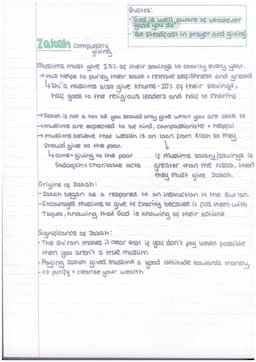 Quotes:
- 'God is well aware of whatever
good you do'
- 'Be steadfast in prayer and giving'
Zakah Compulsory
giving
Muslims must give 2.5% of their savings to charity every year.
→ this helps to purify their souls + remove selfishness and greed
↳ Shi'a muslims also give Khums - 20% of their savings,
half goes to the religious leaders and half to charity
→ Zakah is not a tax all you should only give what you are able to
→ muslims are expected to be kind, compassionate + helpful
→ muslims believe that wealth is on loan from Allah so they
should give to the poor.
↳ alms - giving to the poor
Sadaqah: charitable acts
if muslims salary/savings is
greater than the nisab, then
they must give Zakah.
Origins of Zakah:
- Zakah began as a response to an instruction in the Qur'an.
- Encourages muslims to give to charity because it fills them with
Taqwa, knowing that God is knowing of their actions
Significance of Zakah:
- The Qu'ran makes it clear that if you don't pay when possible
then you aren't a true muslim
- Paying Zakah gives muslims a good attitude towards money.
- to purify + cleanse your wealth